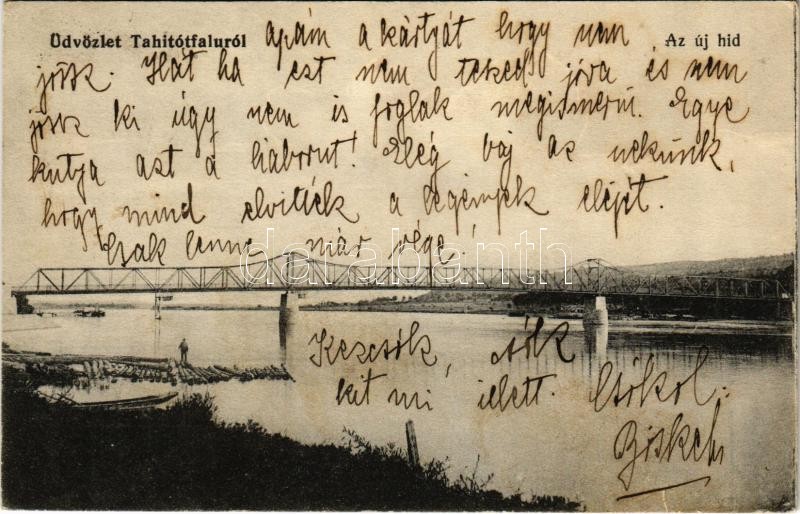 Üdvözlet Tahitótfaluról
Az új hid
apám a kártyát hogy nem
jösz. Hát ha ezt nem teszed jóra és nem
jösz ki úgy nem is foglak megismerni. Egye
kutya azt a háborut! Elég baj az nekünk,
hogy mind elvitték a legények eléjét.
Csak lenne már vége!
darabanth
Kezcsók, csók
kit mi illett. Csókol:
Böskeh